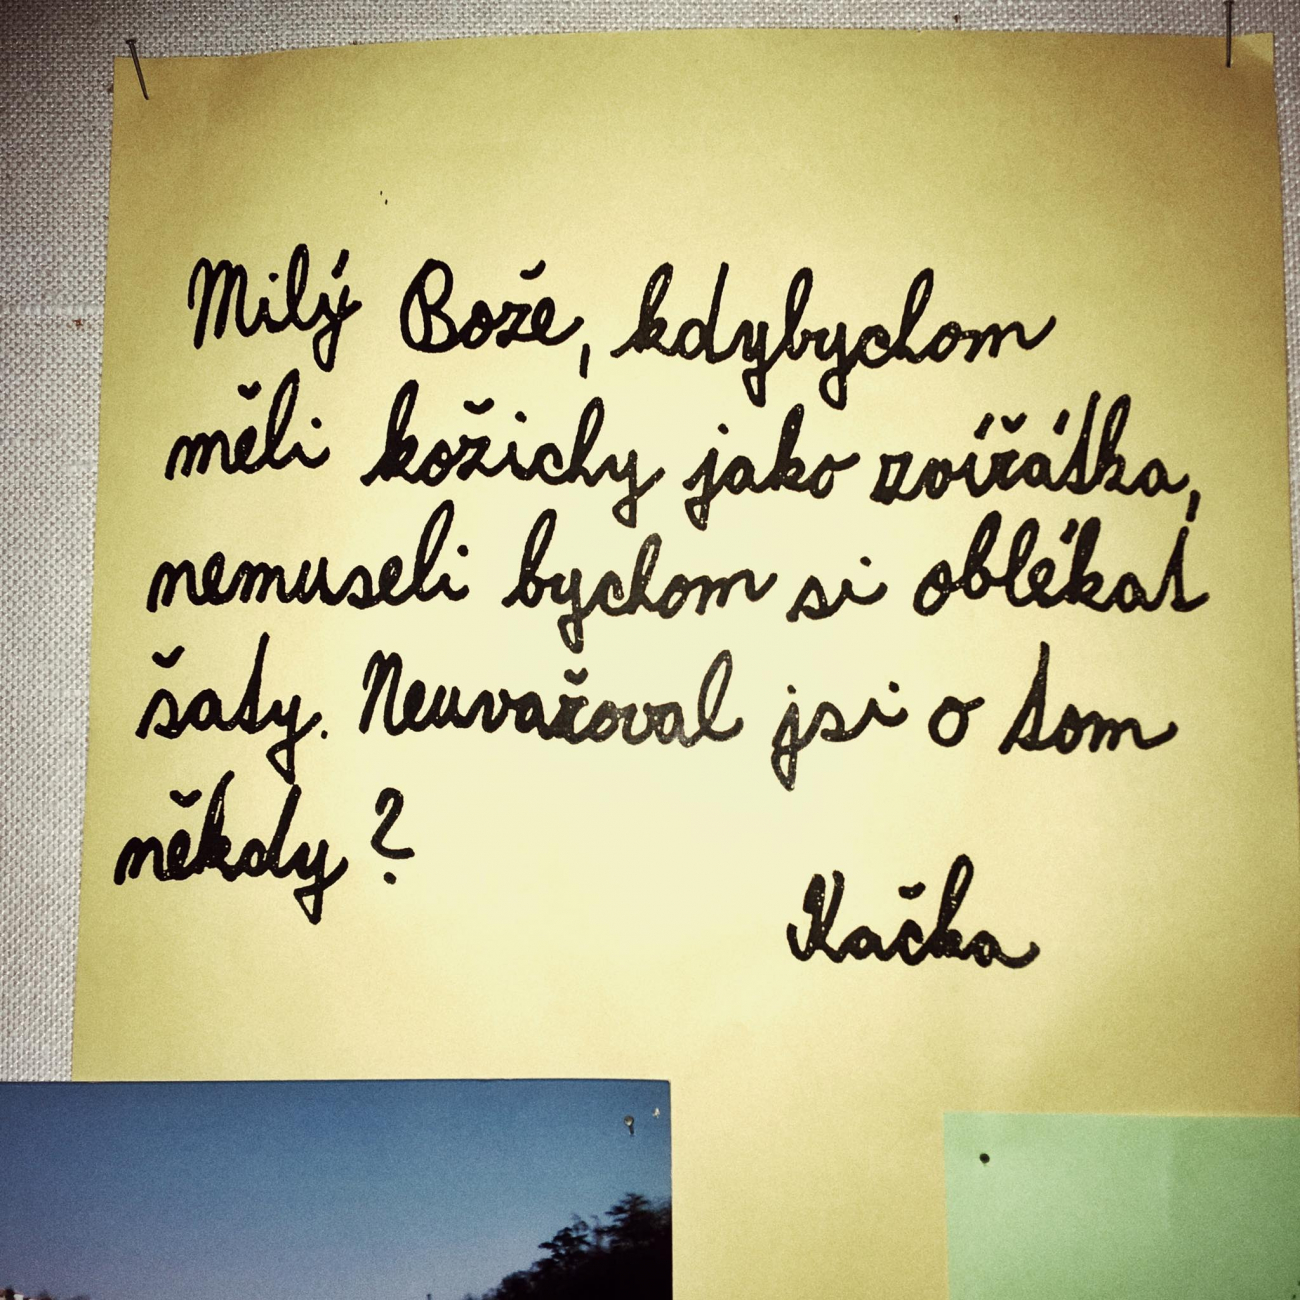 Milý Bože, kdybychom
měli kožichy jako zvířátka,
nemuseli bychom si oblékat
šaty. Neuvažoval jsi o tom
někdy?
Kačka